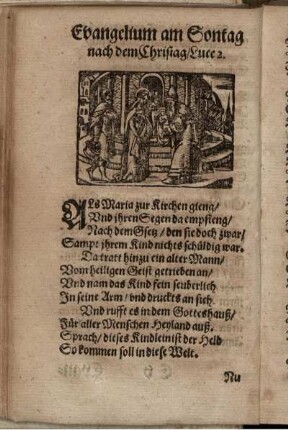 Evangelium am Sontag
nach dem Christag / Luce 2.
ALs Maria zur Kirchen gieng /
Vnd jhren Segen da empfieng /
Nach dem Gsetz / den sie doch zwar /
Sampt jhrem Kind nichts schüldig war.
Da tratt hinzu ein alter Mann /
Vom heiligen Geist getrieben an /
Vnd nam das Kind fein seuberlich
In seine Arm / vnd druckts an sich.
Vnd rufft es in dem Gotteshauß /
Für aller Menschen Heyland auß.
Sprach / dieses Kindlein ist der Held
So kommen soll in diese Welt.
Nu